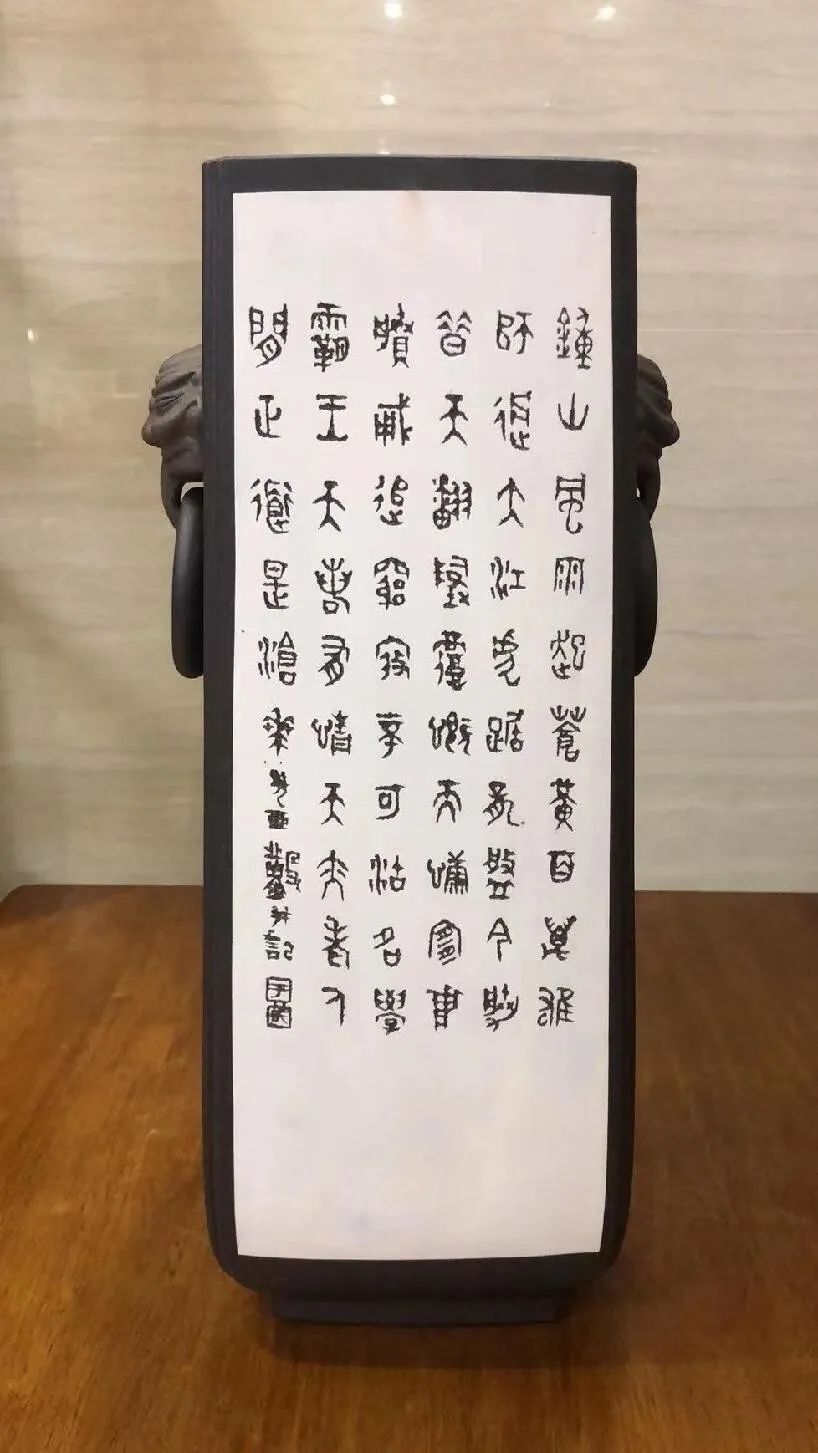 鍾山風雨起蒼黃百萬雄
師過大江虎踞龍盤今勝
昔天翻地覆慨而慷宜將
賸勇追窮寇不可沽名學
霸王天若有情天亦老人
間正道是滄桑 癸酉 記